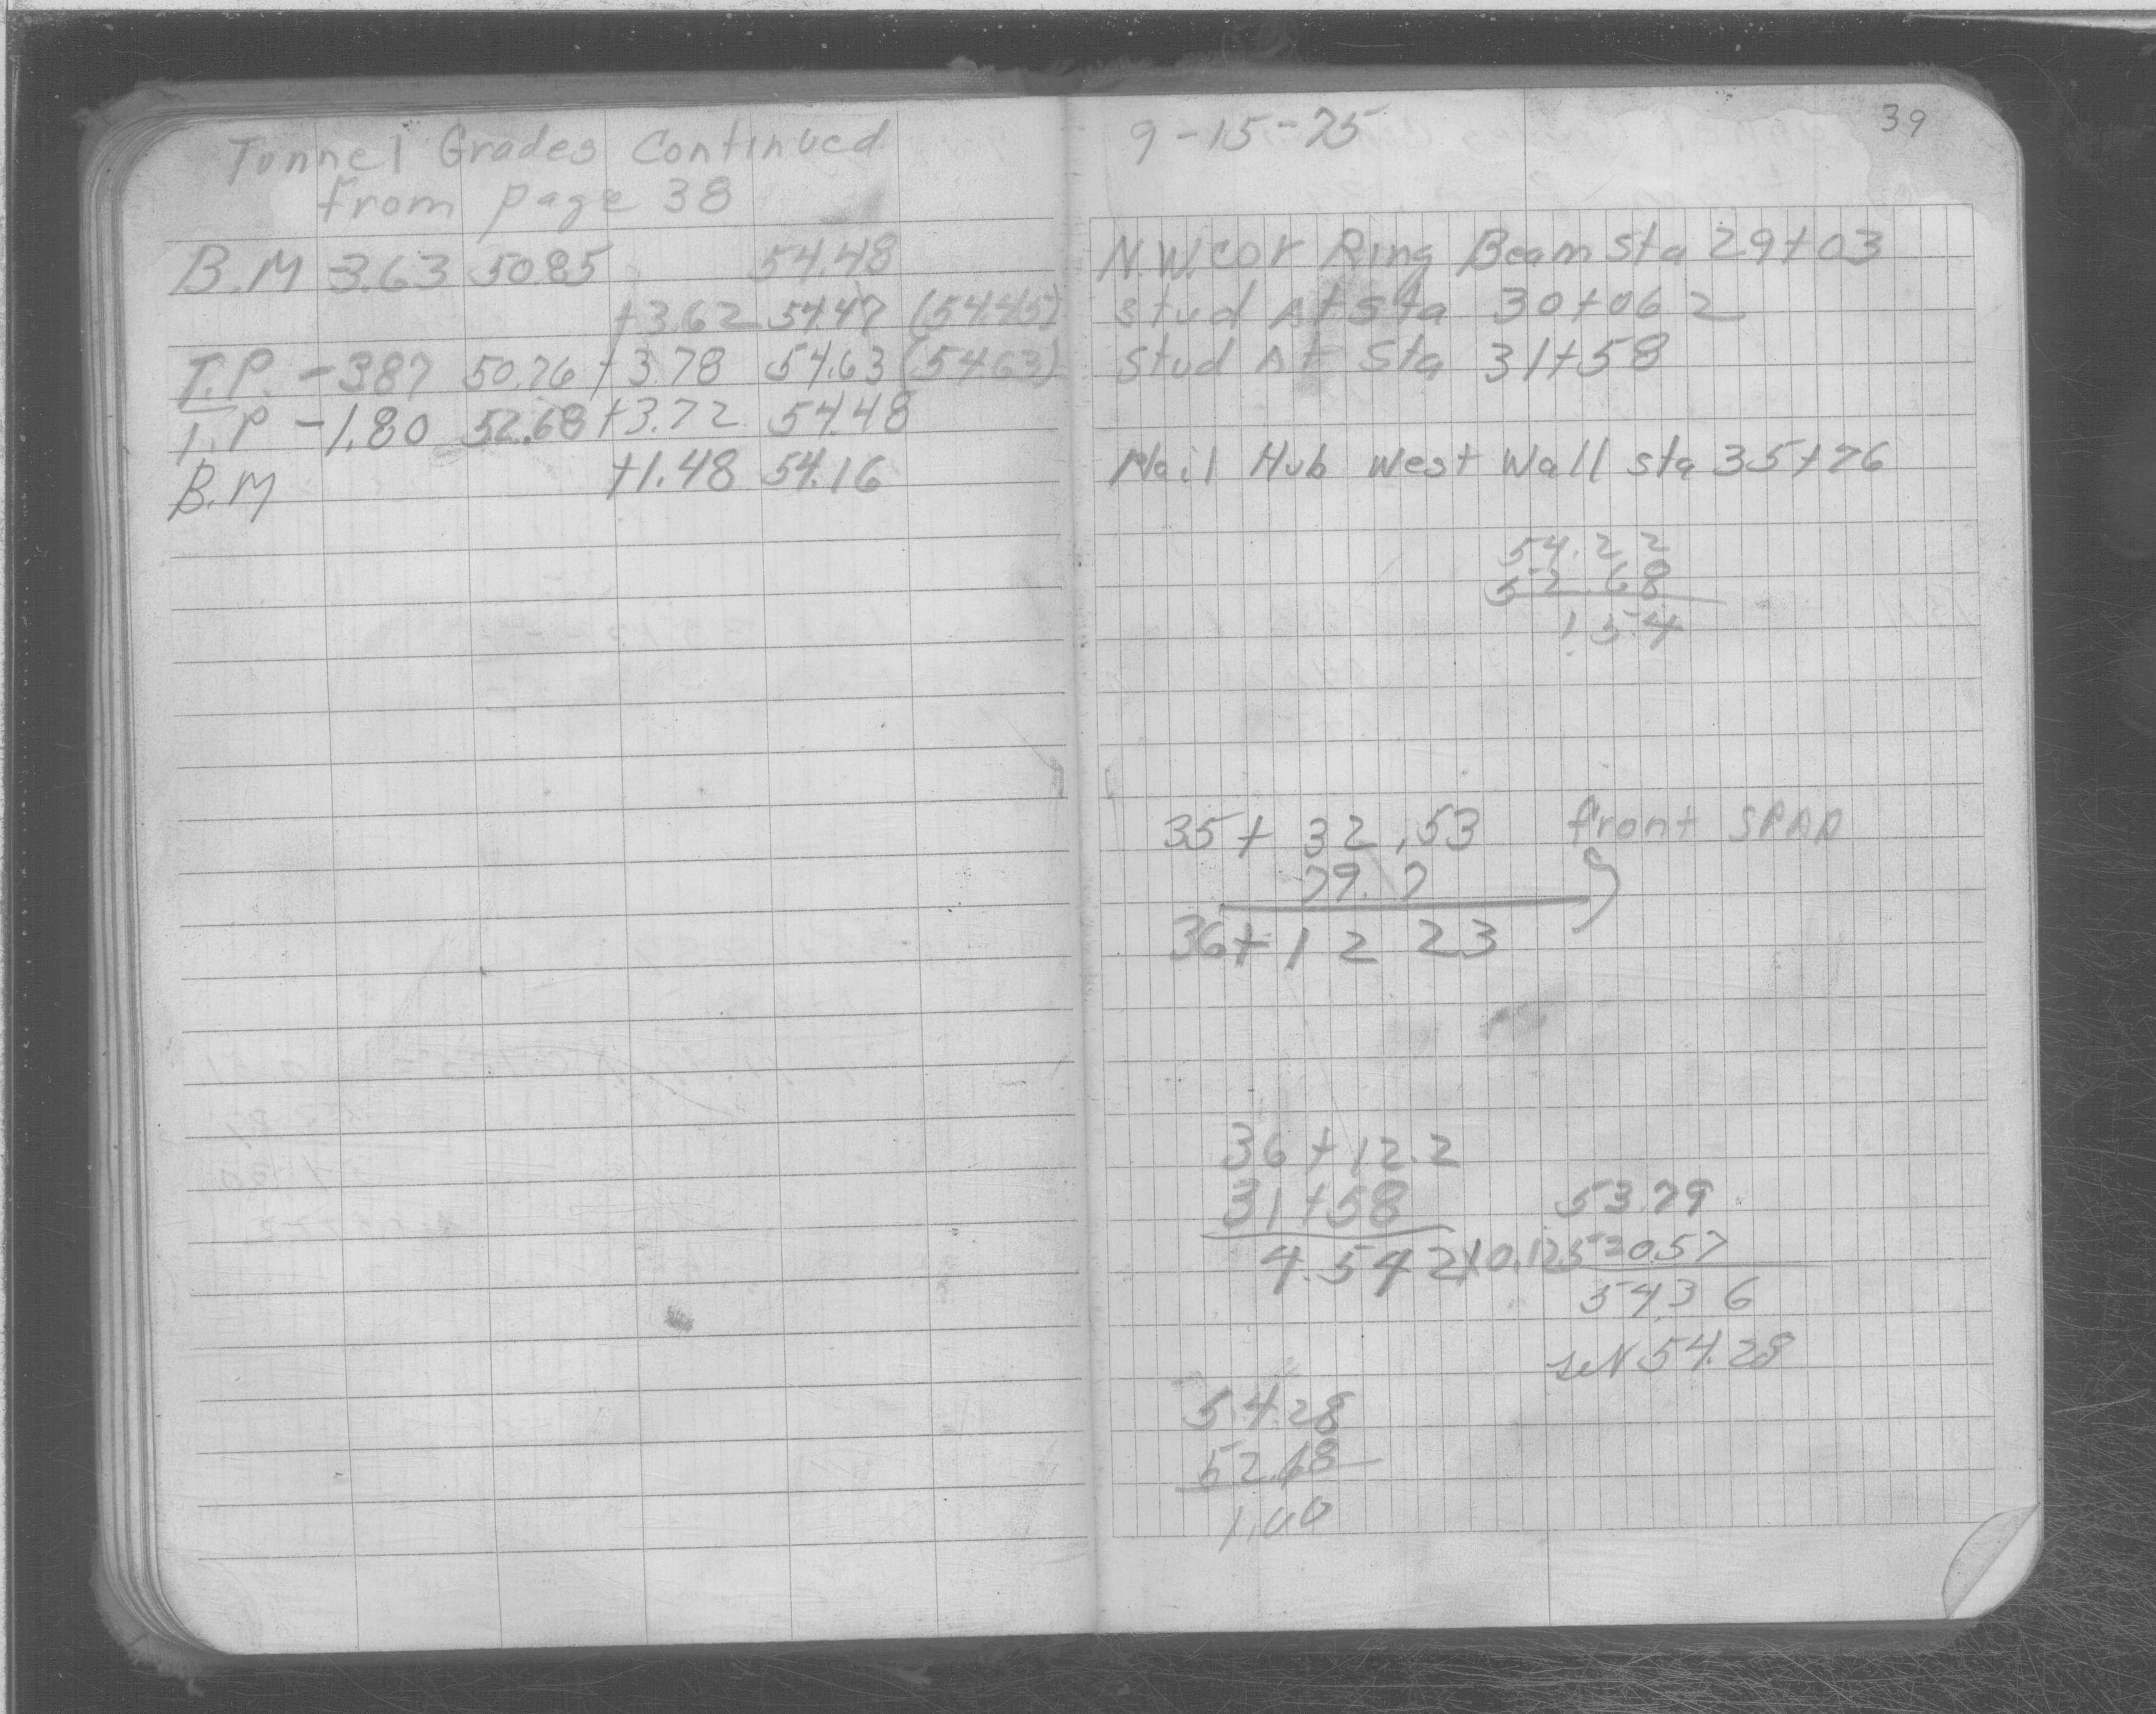 Tunnel Grades Continued
from page 38
B.M -3.63 50.85 54.48
+3.62 54.47 (54.45)
T.P. -3.87 50.76 +3.78 54.63 (54.63)
T.P -1.80 52.68 +3.72 54.48
B.M +1.48 54.16
9-15-75
39
N.W.cor Ring Beam Sta 29+03
Stud At Sta 30+06.2
Stud At Sta 31+58
Nail Hub West Wall Sta 35+76
54.22
52.68
1.54
35+ 32.53 front SPAD
79.7
36+12 23
36+12.2
31+58
4.542 x 0.125=0.57
53.79
54.36
54.28
54.28
52.68
1.60